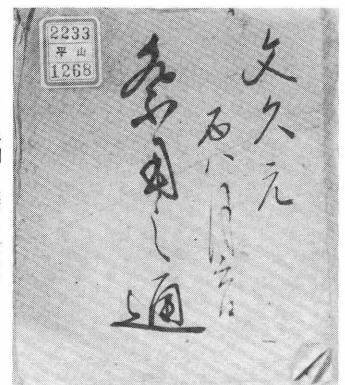 2233
平山
1268
文久元
酉八月吉日
用之通